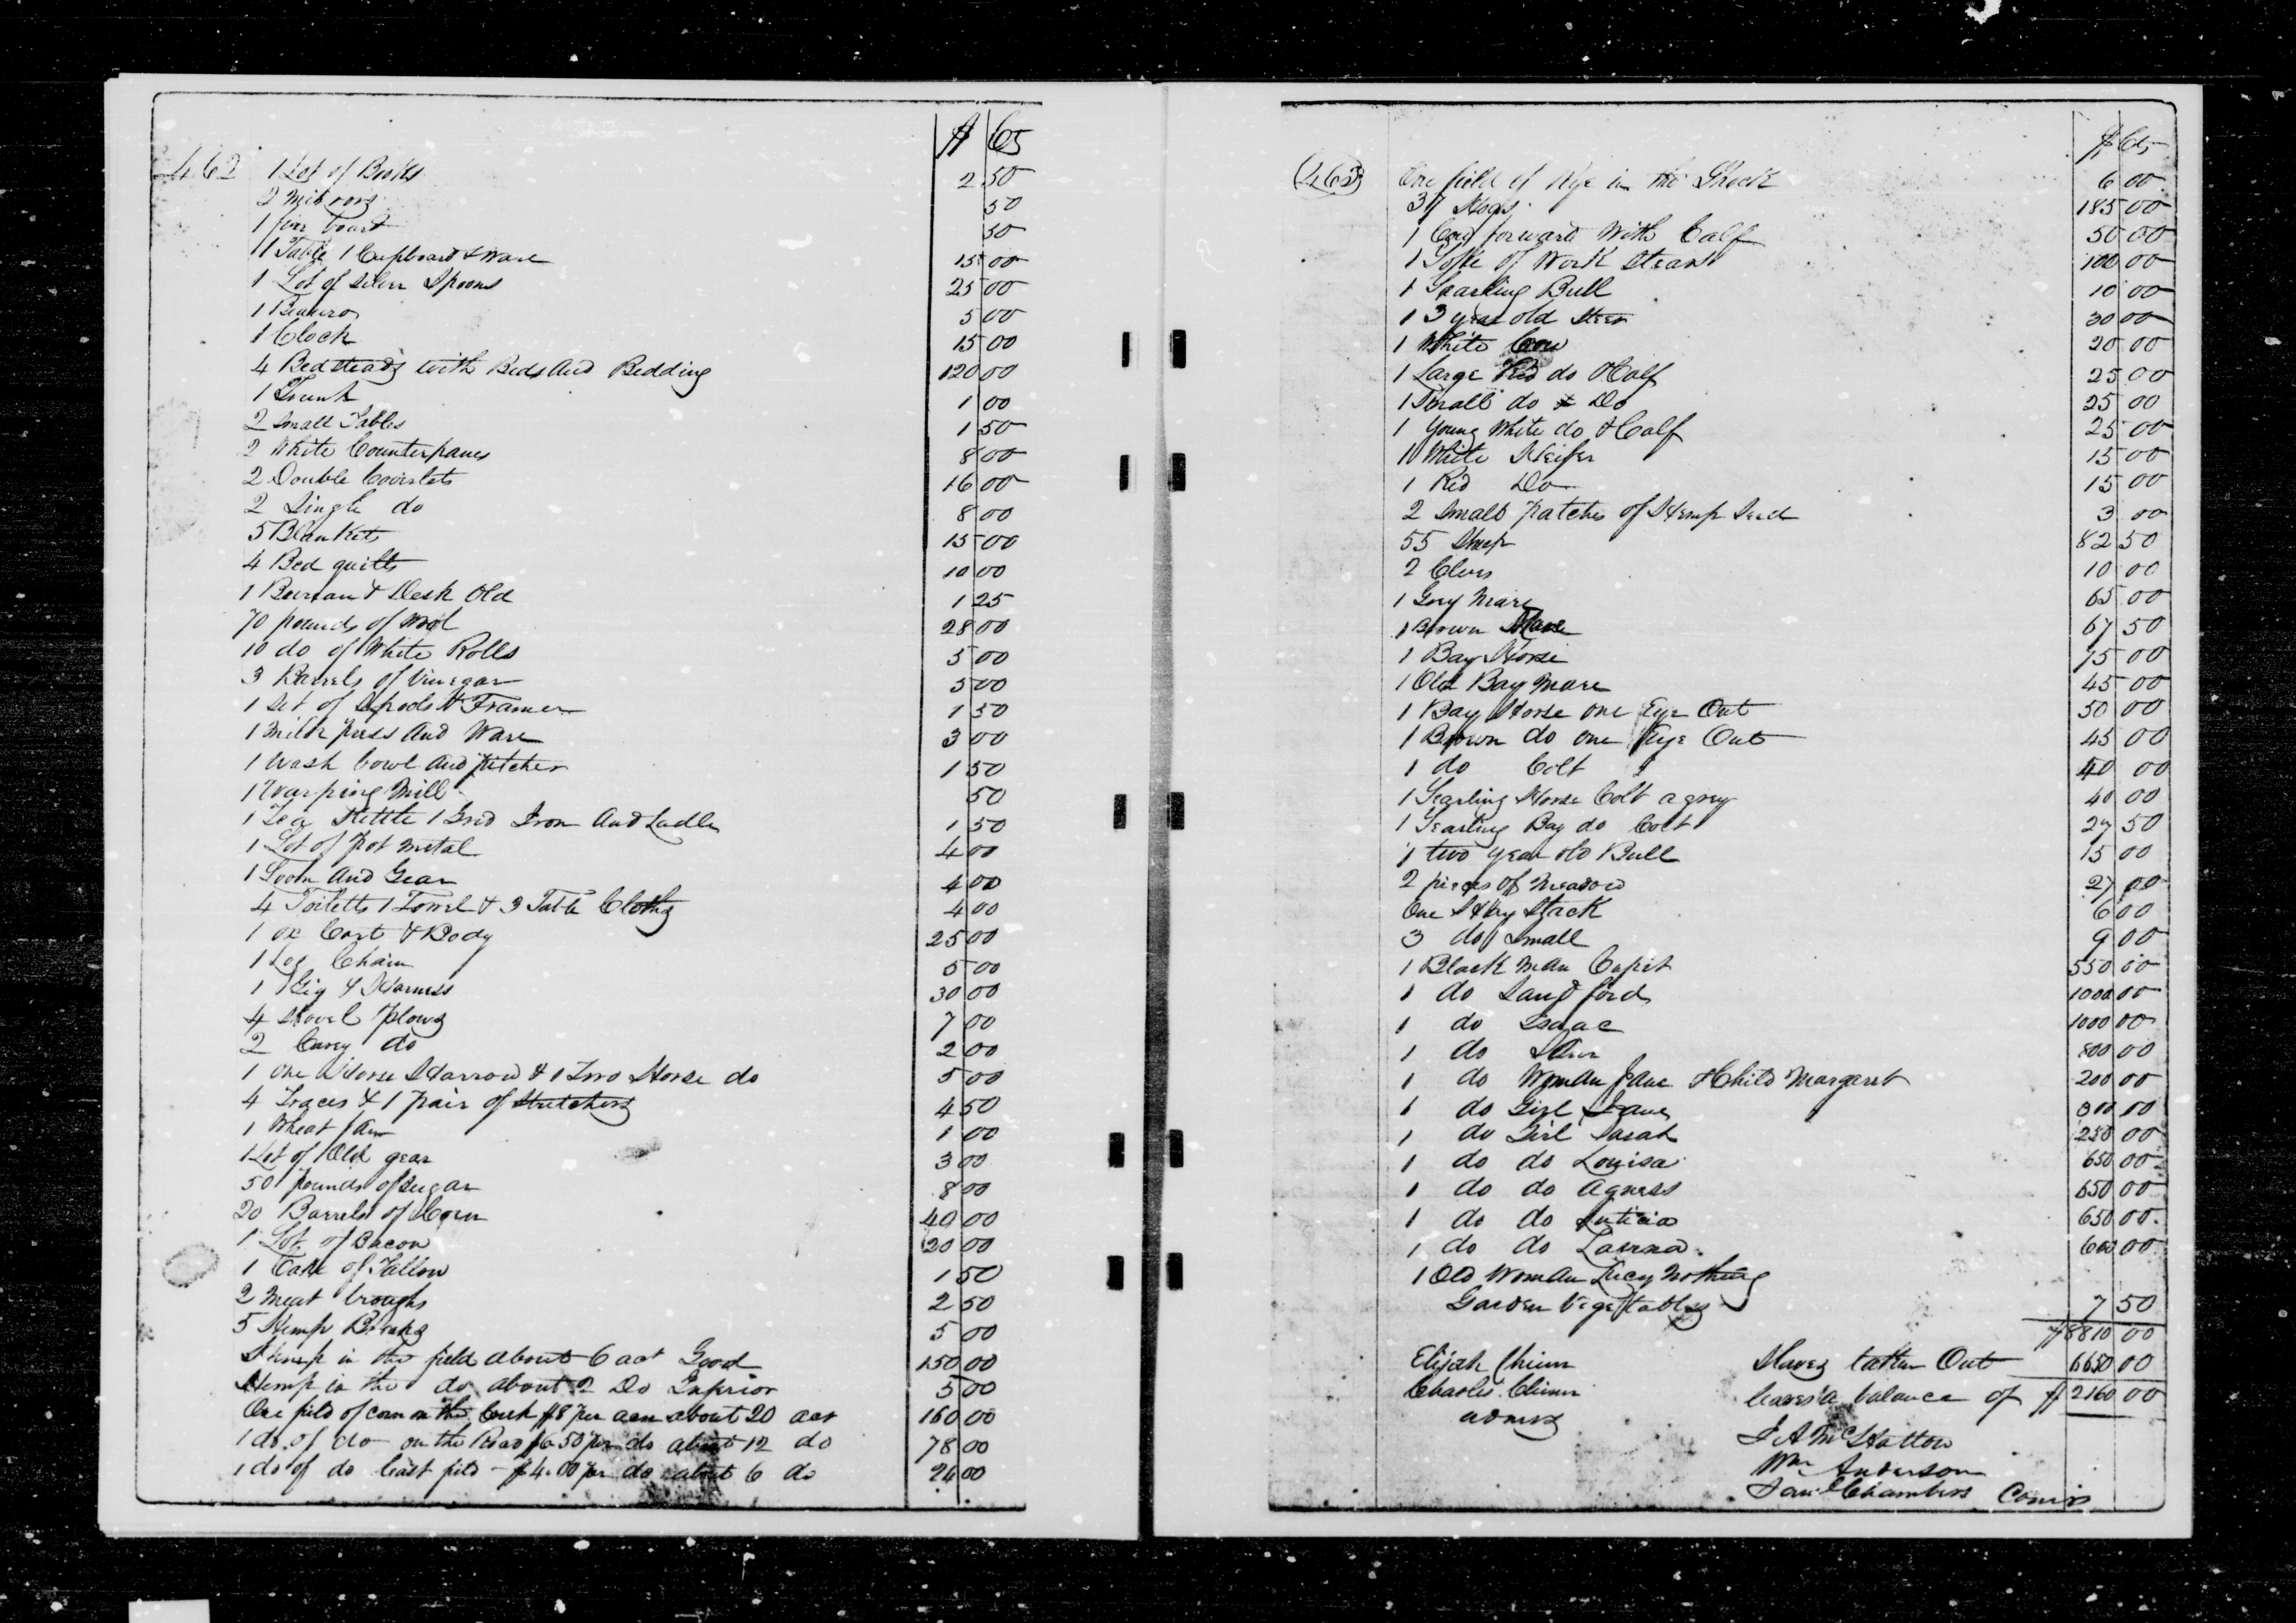 $ | Cts
462 1 Lot of Books 2 50
2 Mirrors 50
1 fire board 50
1 Table 1 Cupboard & Ware 15 00
1 Lot of Silver Spoons 25 00
1 Beaureo 5 00
1 Clock 15 00
4 Bedsteads with Beds And Bedding 120 00
1 Trunk 1 00
2 Small Tables 1 50
2 White Counterpanes 8 00
2 Double Coverlets 16 00
2 Single do 8 00
5 Blankets 15 00
4 Bed quilts 10 00
1 Bureau & Desk Old 1 25
70 pounds of Wool 28 00
10 do of White Rolls 5 00
3 Barrels of Vinegar 5 00
1 Set of Spools & Frames 1 50
1 Milk press And Ware 3 00
1 Wash bowl And pitcher 1 50
1 Warping Mill 50
1 Tea Kettle 1 Grid Iron And Ladles 1 50
1 Lot of pot metal 4 00
1 Loom And Gear 4 00
4 Toiletts 1 Towel & 3 Table Cloths 4 00
1 ox Cart & Body 25 00
1 Log Chain 5 00
1 Gig & Harness 30 00
4 Shovel plows 7 00
2 Carey do 2 00
1 One Horse Harrow & 1 Two Horse do 5 00
4 Traces & 1 pair of Stretchers 4 50
1 Wheat fan 1 00
1 Lot of Old gear 3 00
50 pounds of Sugar 8 00
20 Barrels of Corn 40 00
1 Lot of Bacon 20 00
1 Cake of Tallow 1 50
2 Meat troughs 2 50
5 Hemp Breaks 5 00
Hemp in the field about 6 acr Good 150 00
Hemp in the do about 2 Do Inferior 5 00
One field of corn on the Creek $8 per acre about 20 acr 160 00
1 do of do on the Road $6.50 per do about 12 do 78 00
1 do of do least field $4.00 per do about 6 do 24 00
$ | Cts
(463) One field of Rye in the Shock 6 00
37 Hogs 185 00
1 Cow forward With Calf 50 00
1 Yoke of Work Steers 100 00
1 Yearling Bull 10 00
1 3 year old Steer 30 00
1 White Cow 20 00
1 Large Red do & Calf 25 00
1 Small do & Do 25 00
1 Young White do & Calf 25 00
1 White Heifer 15 00
1 Red Do 15 00
2 Small patches of Hemp Seed 3 00
55 Sheep 82 50
2 10 00
1 Grey Mare 65 00
1 Brown Mare 67 50
1 Bay Horse 75 00
1 Old Bay Mare 45 00
1 Bay Horse one Eye Out 50 00
1 Brown do one Aye Out 45 00
1 do Colt 40 00
1 Yearling Horse Colt a grey 40 00
1 Yearling Bay do Colt 27 50
1 two year old Bull 15 00
2 pieces of Meadow 27 00
One Hay Stack 6 00
3 do Small 9 00
1 Black Man Cupit 550 00
1 do Landford 1000 00
1 do Isaac 1000 00
1 do 800 00
1 do Woman Jane & Child Margaret 200 00
1 do Girl Jane 300 00
1 do Girl Sarah 250 00
1 do do Louisa 650 00
1 do do Agness 650 00
1 do do Luticia 650 00
1 do do Laurna 600 00
1 Old Woman Lucy Nothing
Garden Vegetables 7 50
$8810 00
Elijah Chinn Slaves taken Out 6650 00
Charles Chinn leaves a balance of $2160 00
Admrs
J A McHatton
Wm Anderson
Saml Chambers Comrs